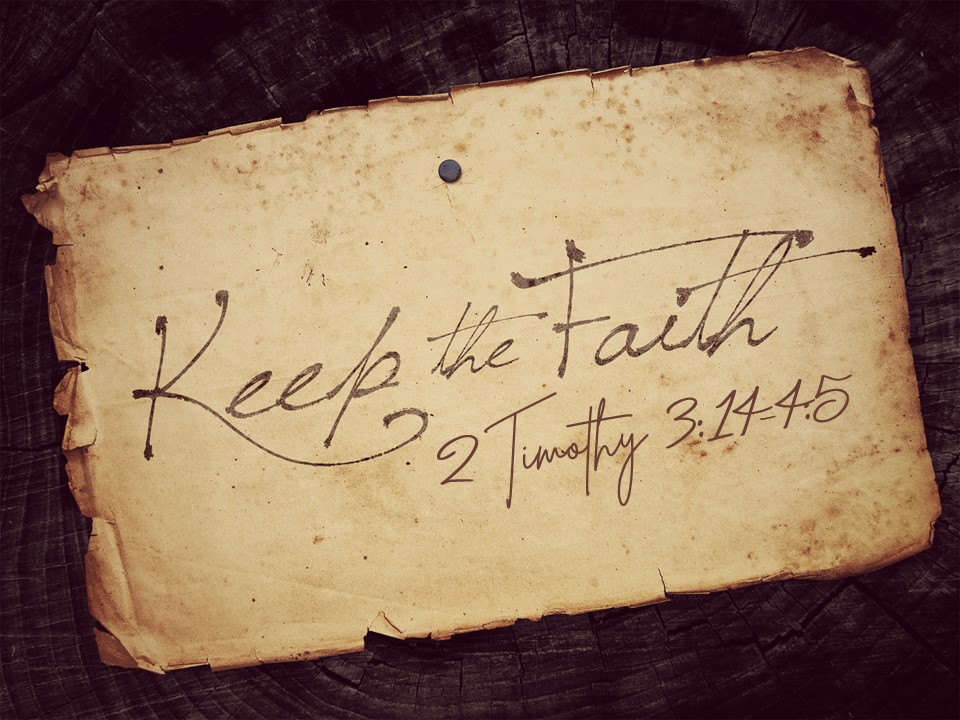 Keep the Faith
2 Timothy 3:14-4:5